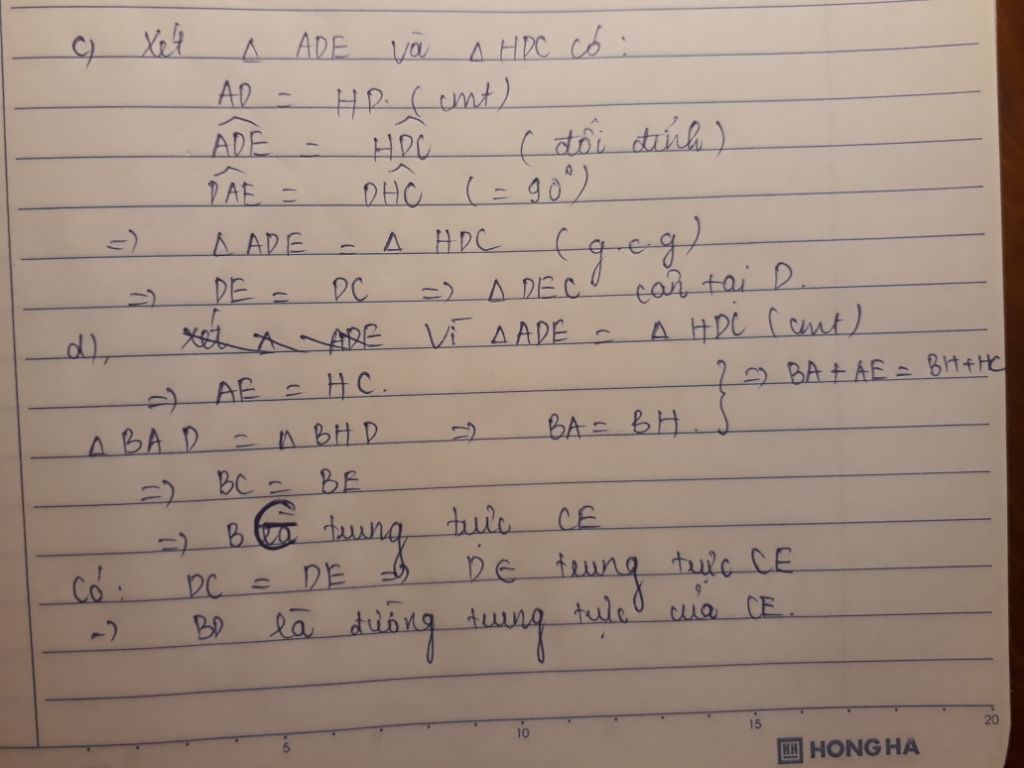 c) Xét Δ ADE và Δ HDC có:
AD = HD. (cmt)
ADE = HDC (đối đỉnh)
DAE = DHC (= 90°)
=> Δ ADE = Δ HDC (g.c.g)
=> DE = DC => Δ DEC cân tại D.
d), Xét Δ ADE Vì Δ ADE = Δ HDC (cmt)
=> AE = HC.
Δ BAD = Δ BHD => BA = BH. } => BA + AE = BH + HC
=> BC = BE
=> B ∈ trung trực CE
Có: DC = DE => D ∈ trung trực CE
=> BD là đường trung trực của CE.
5 10 15 20
HH HONG HA